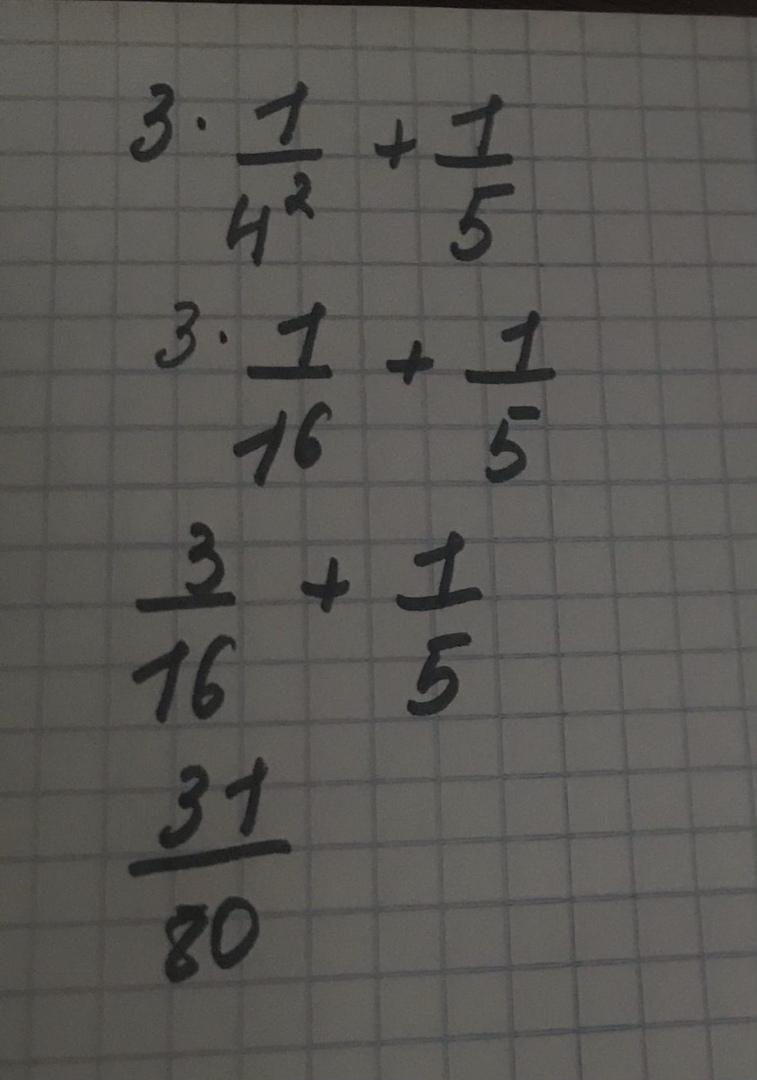 3 · 1/4² + 1/5
3 · 1/16 + 1/5
3/16 + 1/5
31/80